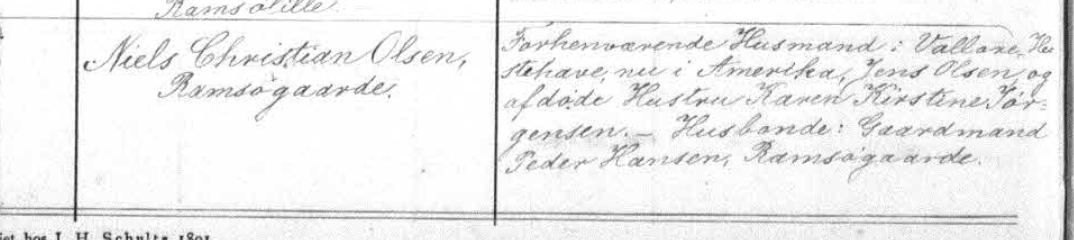 Ramsølille.
Niels Christian Olsen,
Ramsøgaarde.
Forhenværende Husmand i Valløre, Hu
stehave, nu i Amerika, Jens Olsen, og
afdøde Hustru Karen Kirstine Jør-
gensen. — Husbonde: Gaardmand
Peder Hansen, Ramsøgaarde.
hos J. H. Schultz 1891